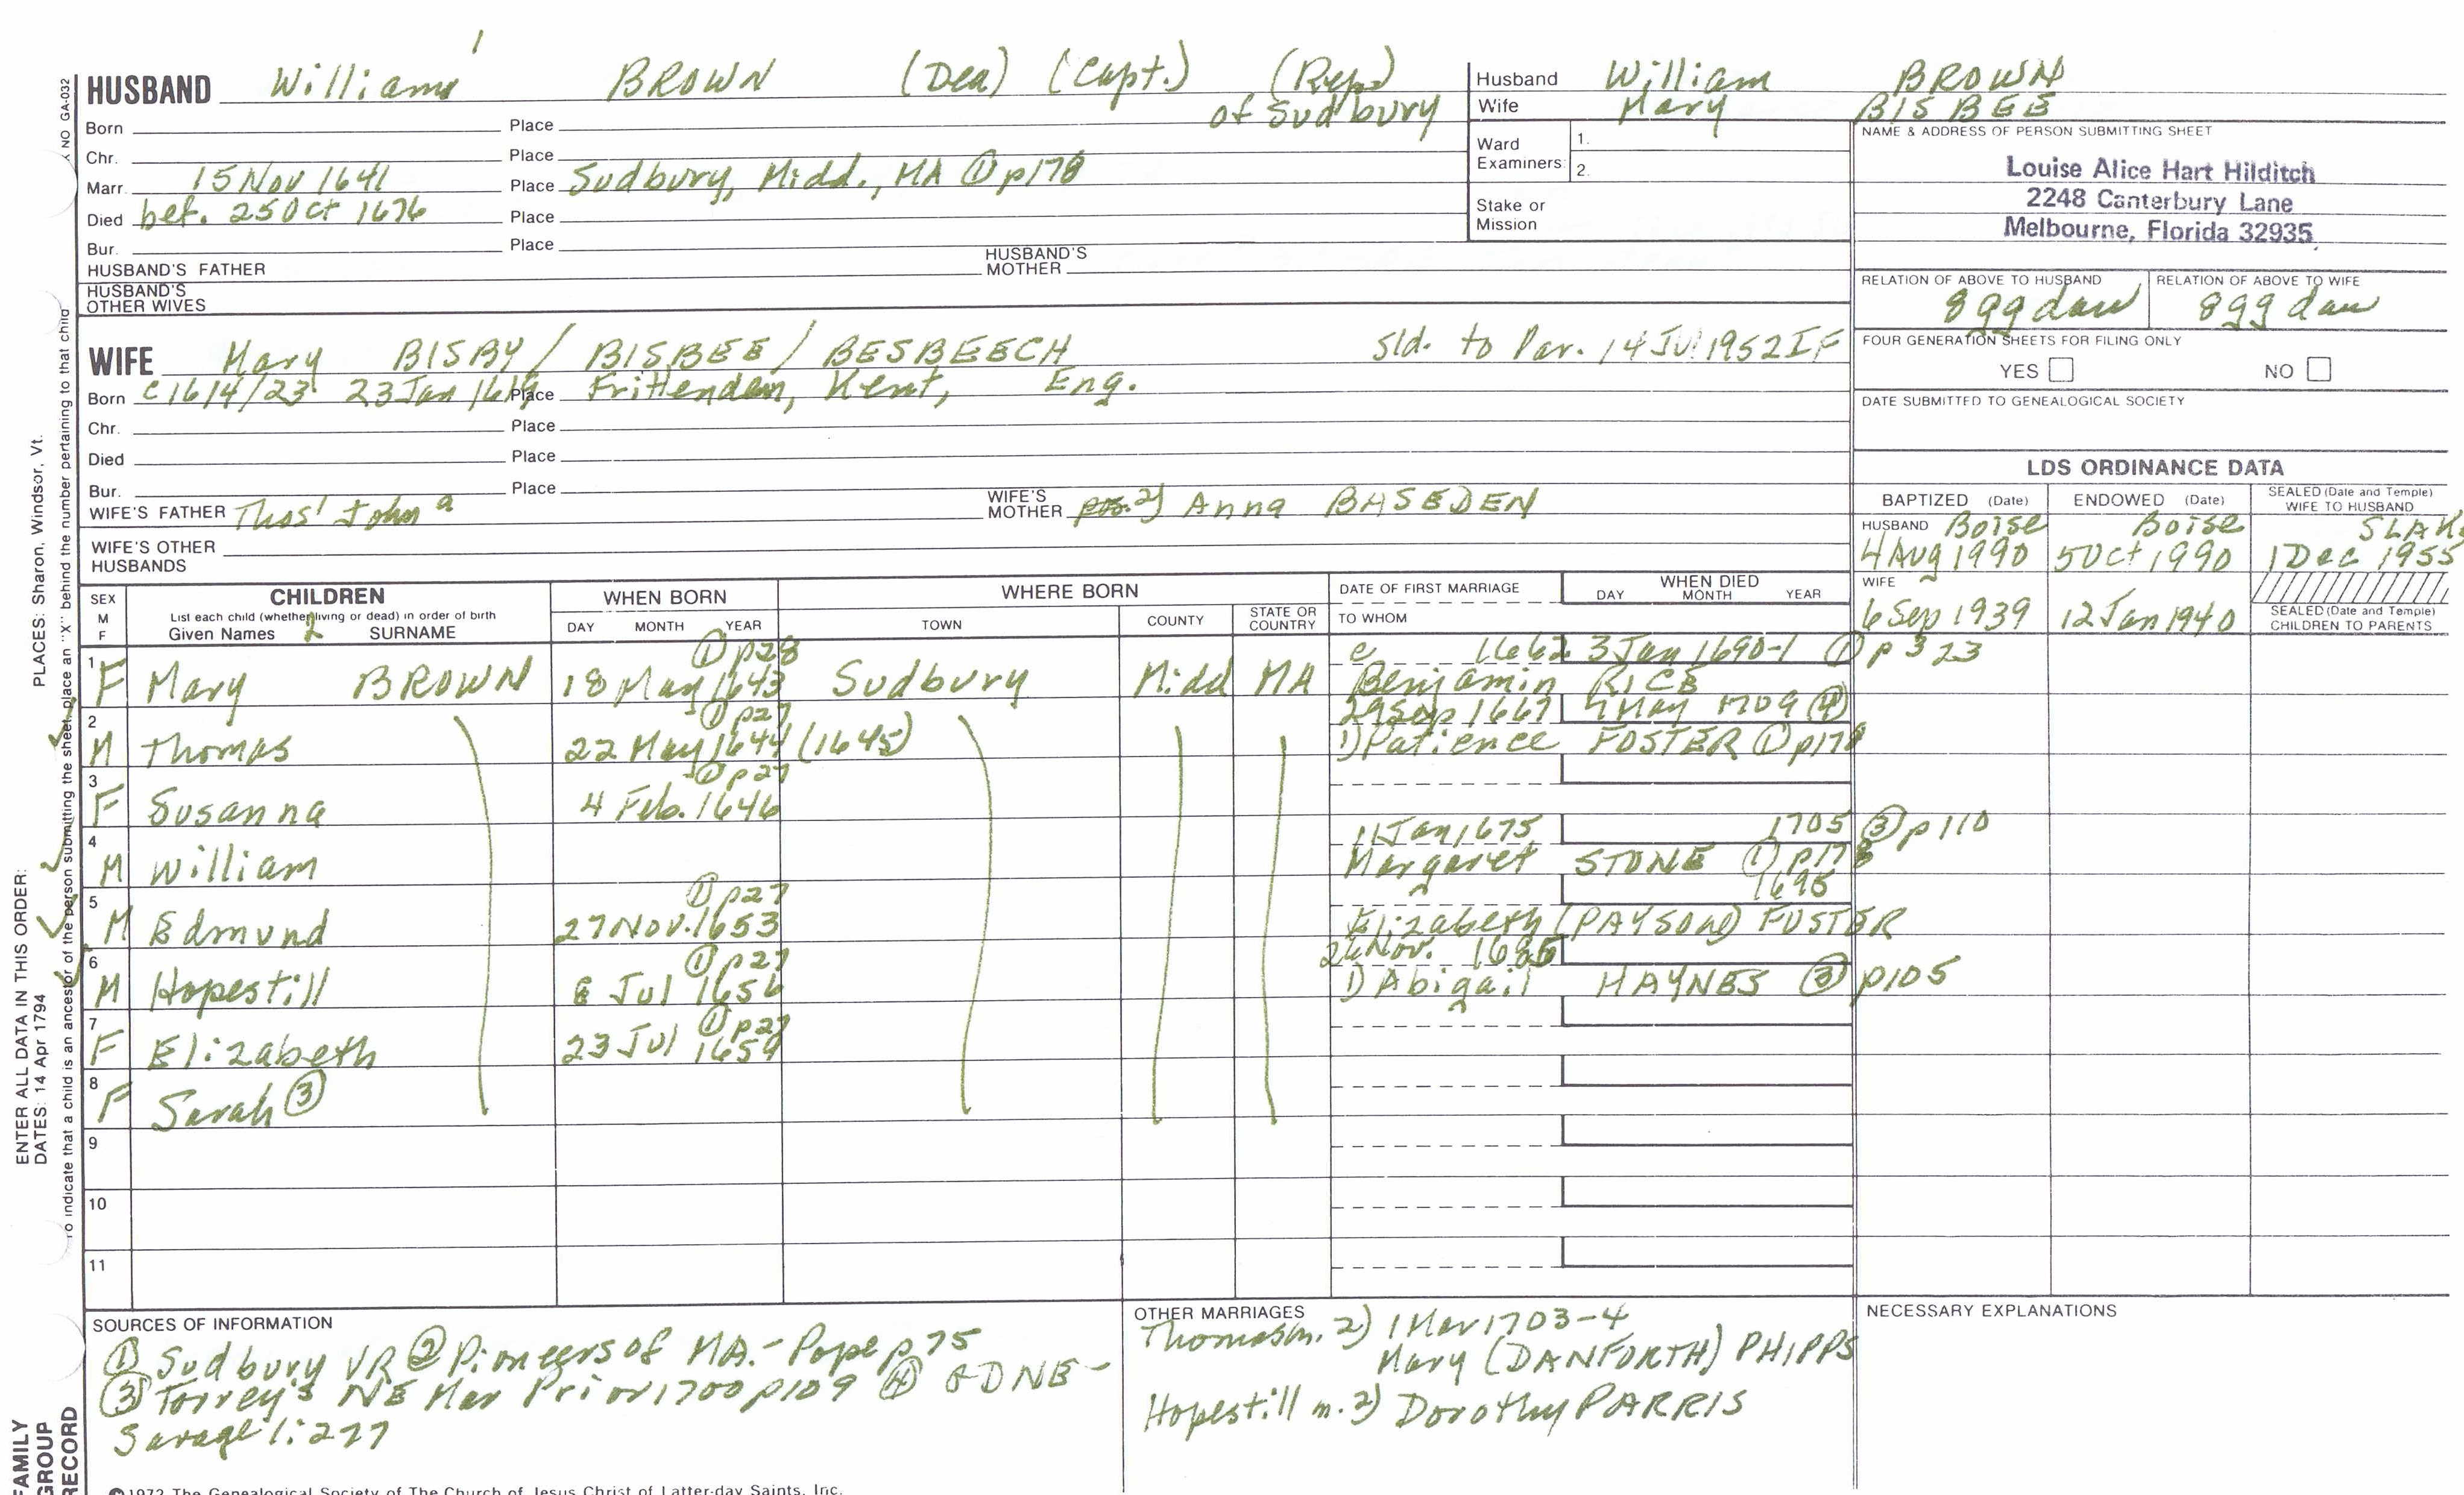 HUSBAND William¹ BROWN (Dea) (Capt.) (Rep) of Sudbury
Born Place
Chr. Place
Marr. 15 Nov 1641 Place Sudbury, Midd., MA ① p178
Died bef. 25 Oct 1676 Place
Bur. Place
HUSBAND'S FATHER HUSBAND'S MOTHER
HUSBAND'S OTHER WIVES
WIFE Mary BISBY / BISBEE / BESBEECH Sld. to Par. 14 Jul 1952 IF
Born c1614/23 23 Jan 1619 Place Frittenden, Kent, Eng.
Chr. Place
Died Place
Bur. Place
WIFE'S FATHER Thos¹ John a WIFE'S MOTHER 2) Anna BASEDEN
WIFE'S OTHER HUSBANDS
Husband William BROWN
Wife Mary BISBEE
Ward Examiners: 1.
2.
Stake or Mission
NAME & ADDRESS OF PERSON SUBMITTING SHEET
Louise Alice Hart Hilditch
2248 Canterbury Lane
Melbourne, Florida 32935
RELATION OF ABOVE TO HUSBAND RELATION OF ABOVE TO WIFE
8 gg dau 8 gg dau
FOUR GENERATION SHEETS FOR FILING ONLY
YES NO
DATE SUBMITTED TO GENEALOGICAL SOCIETY
LDS ORDINANCE DATA
BAPTIZED (Date) ENDOWED (Date) SEALED (Date and Temple) WIFE TO HUSBAND
HUSBAND Boise Boise SLAKE
4 Aug 1990 5 Oct 1990 1 Dec 1955
WIFE
6 Sep 1939 12 Jan 1940 SEALED (Date and Temple) CHILDREN TO PARENTS
SEX M F CHILDREN WHEN BORN WHERE BORN DATE OF FIRST MARRIAGE WHEN DIED
List each child (whether living or dead) in order of birth DAY MONTH YEAR
Given Names 2 SURNAME DAY MONTH YEAR TOWN COUNTY STATE OR COUNTRY TO WHOM
1 ① p28 c 1662 3 Jan 1690-1 ① p 323
F Mary BROWN 18 May 1643 Sudbury Midd MA Benjamin RICE
2 ① p27 29 Sep 1667 7 May 1709 ④
M Thomas 22 May 1644 (1645) 1) Patience FOSTER ① p178
3 ① p27
F Susanna 4 Feb. 1646
4 11 Jan 1675 1705 ③ p110
M William Margaret STONE ① p178
5 ① p27 1695
M Edmund 27 Nov. 1653 Elizabeth (PAYSON) FOSTER
6 ① p27 26 Nov. 1685
M Hopestill 8 Jul 1656 1) Abigail HAYNES ③ p105
7 ① p27
F Elizabeth 23 Jul 1659
8
F Sarah ③
9
10
11
SOURCES OF INFORMATION
① Sudbury VR ② Pioneers of MA. - Pope p 75
③ Torrey's NE Mar Prior 1700 p109 ④ GDNE -
Savage 1:277
OTHER MARRIAGES
Thomas m. 2) 1 Mar 1703-4
Mary (DANFORTH) PHIPPS
Hopestill m. 2) Dorothy PARRIS
NECESSARY EXPLANATIONS
©1972 The Genealogical Society of The Church of Jesus Christ of Latter-day Saints, Inc.
NO GA-032
PLACES: Sharon, Windsor, Vt.
ENTER ALL DATA IN THIS ORDER:
DATES: 14 Apr 1794
To indicate that a child is an ancestor of the person submitting the sheet, place an "X" behind the number pertaining to that child
FAMILY
GROUP
RECORD